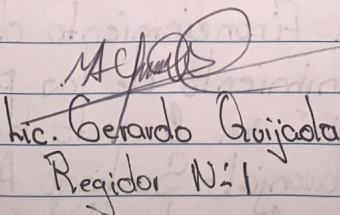 Lic. Gerardo Quijada
Regidor N-1